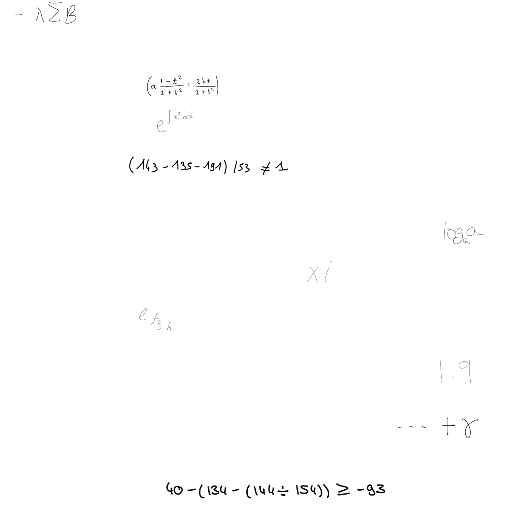 - λ∑B
(a (1-t²)/(1+t²), 2bt/(1+t²))
e^∫x²dx
(143-135-191)/53 ≠ 1
logₐa
xi
1.9
... + γ
40-(134-(144÷154)) ≥ -93